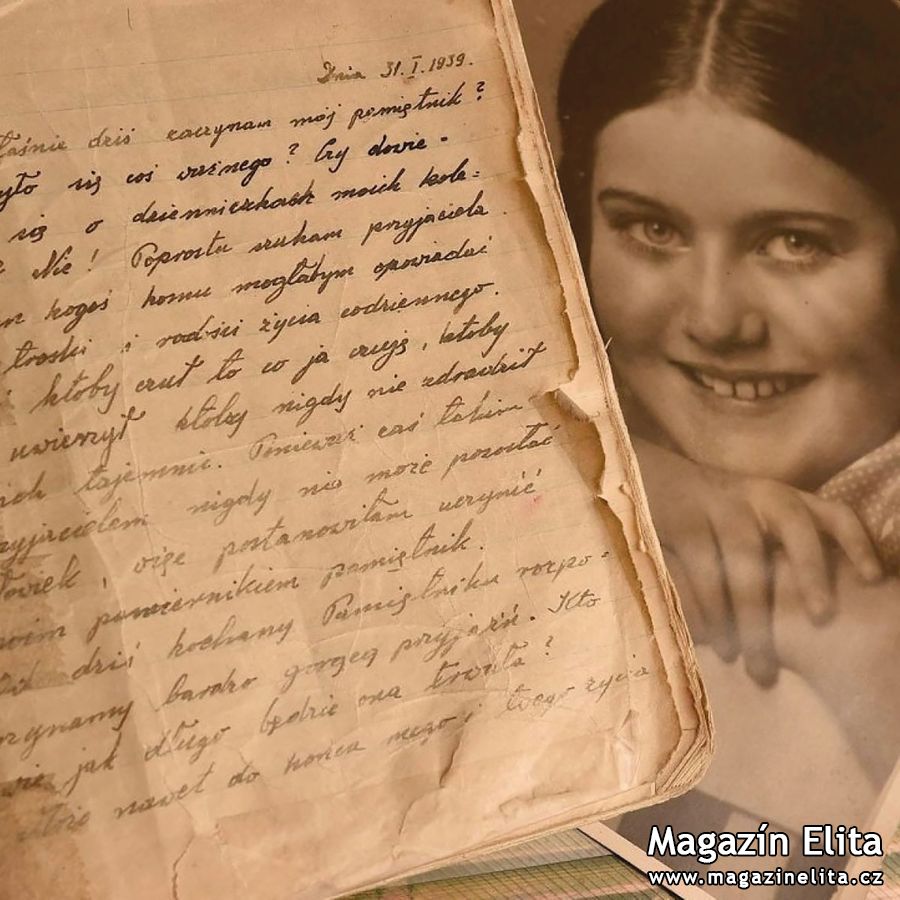 Dnia 31.I.1939.
właśnie dziś zaczynam mój pamiętnik?
yło się coś ważnego? Czy dowie-
się o dzienniczkach moich kole-
Nie! Poprostu szukam przyjaciela.
kogoś komu mogłabym opowiadać
troski i radości życia codziennego.
ktoby czuł to co ja czuję, ktoby
uwierzył ktoby nigdy nie zdradził
ich tajemnic. Ponieważ zaś takim
zyjacielem nigdy nie może pozostać
łowiek, więc postanowiłam uczynić
oim powiernikiem pamiętnik.
dziś kochany Pamiętniku rozpo-
czynamy bardzo gorącą przyjaźń. Kto
wie jak długo będzie ona trwała?
może nawet do końca mego i twego życia
Magazín Elita
www.magazinelita.cz